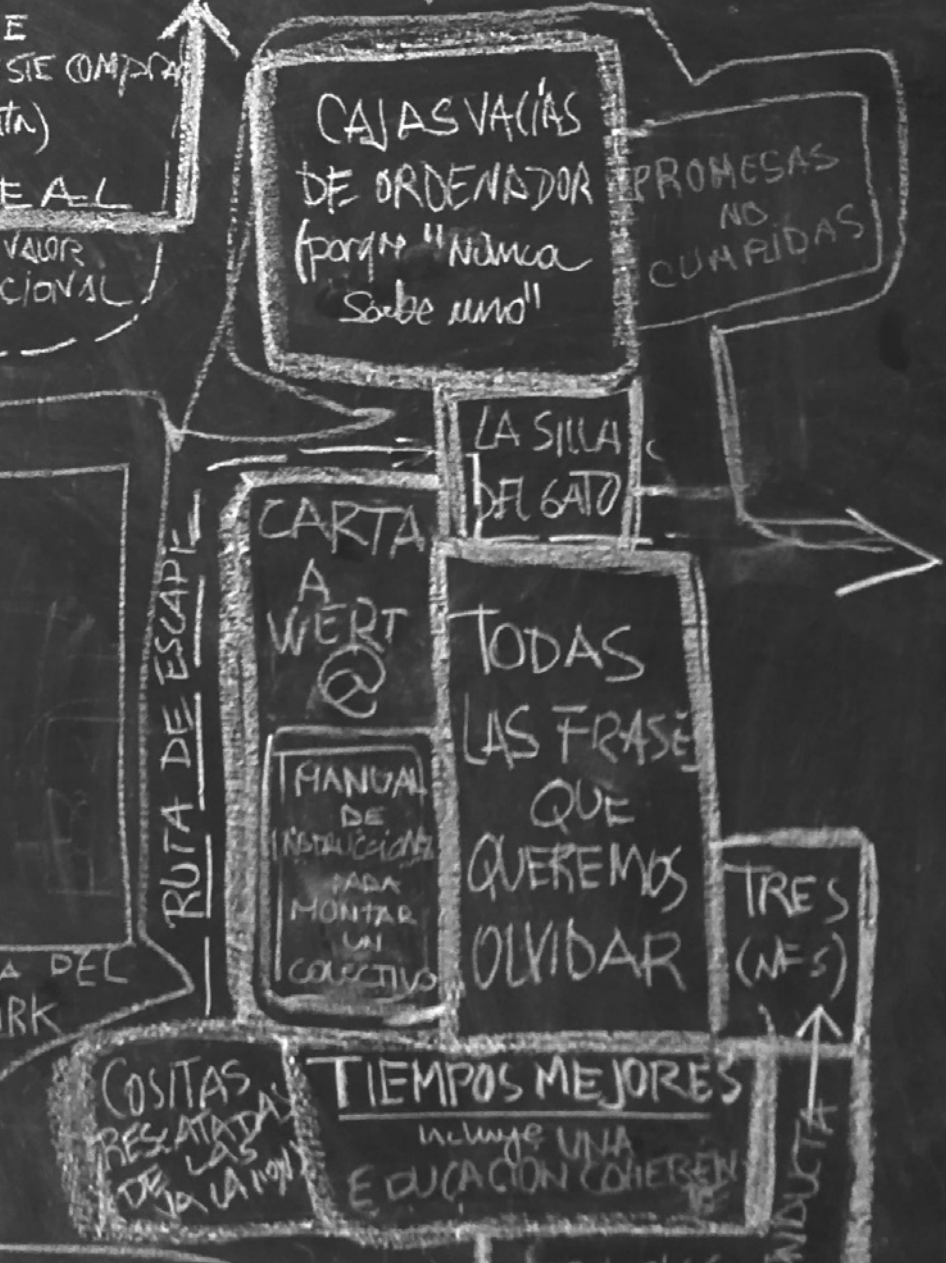 E
STE COMPRA
EAL
VALOR
CIONAL
CAJAS VACÍAS
DE ORDENADOR
(porque "Nunca
Sabe uno"
PROMESAS
NO
CUMPLIDAS
LA SILLA
DEL GATO
RUTA DE ESCAPE
CARTA
A
WERT
@
MANUAL
DE
INSTRUCCIONES
PARA
MONTAR
UN
COLECTIVO
TODAS
LAS FRASES
QUE
QUEREMOS
OLVIDAR
TRES
(NES)
A DEL
ARK
COSITAS
RESCATADAS
DE LAS
TIEMPOS MEJORES
incluye UNA
EDUCACIÓN COHEREN
NDUCTA